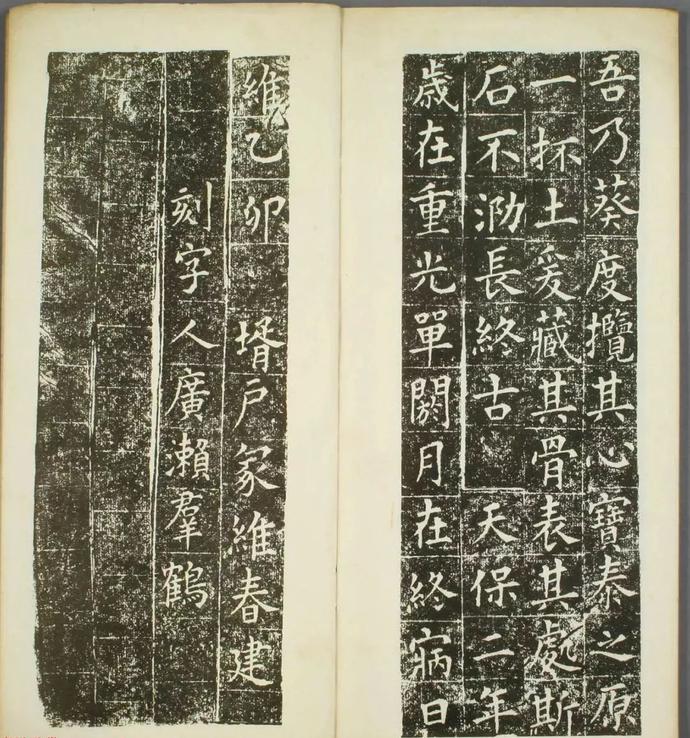 吾乃葵度攬其心寶泰之原
一抔土爰藏其骨表其處斯
石不泐長終古　天保二年
歲在重光單閼月在終窉日
維乙卯　壻戸冢維春建
刻字人廣瀨羣鶴